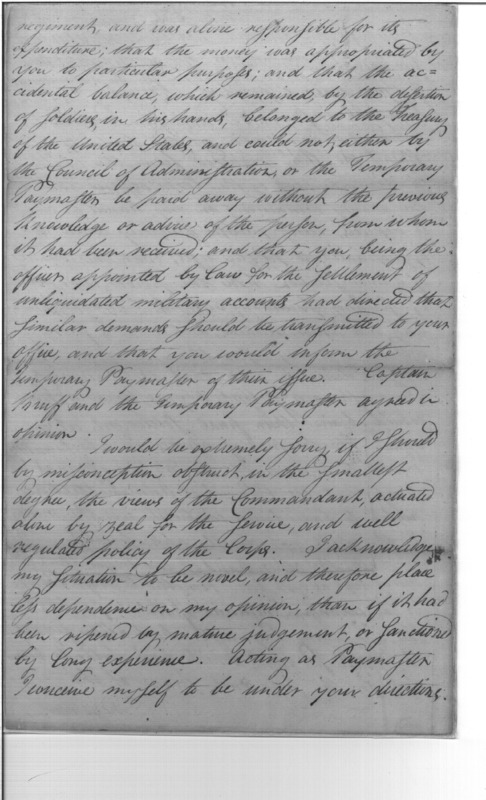 regiment, and was alone responsible for its
expenditure; that the money was appropriated by
you to particular purposes; and that the ac=
cidental balance, which remained, by the desertion
of soldiers, in his hands, belonged to the Treasury
of the United States, and could not, either by
the Council of Administration, or the Temporary
Paymaster be paid away without the previous
knowledge or advice of the person, from whom
it had been received; and that you, being the
officer appointed by law for the settlement of
unliquidated military accounts had directed that
similar demands should be transmitted to your
office, and that you would inform the
temporary Paymaster of their issue. Captain
Bruff and the temporary Paymaster agreed in
opinion.
I would be extremely sorry, if I should
by misconception obstruct, in the smallest
degree, the views of the Commandant, actuated
alone by zeal for the service, and well
regulated policy of the Corps. I acknowledge
my situation to be novel, and therefore place
less dependence on my opinion, than if it had
been ripened by mature judgement, or sanctioned
by long experience. Acting as Paymaster
I conceive myself to be under your directions.